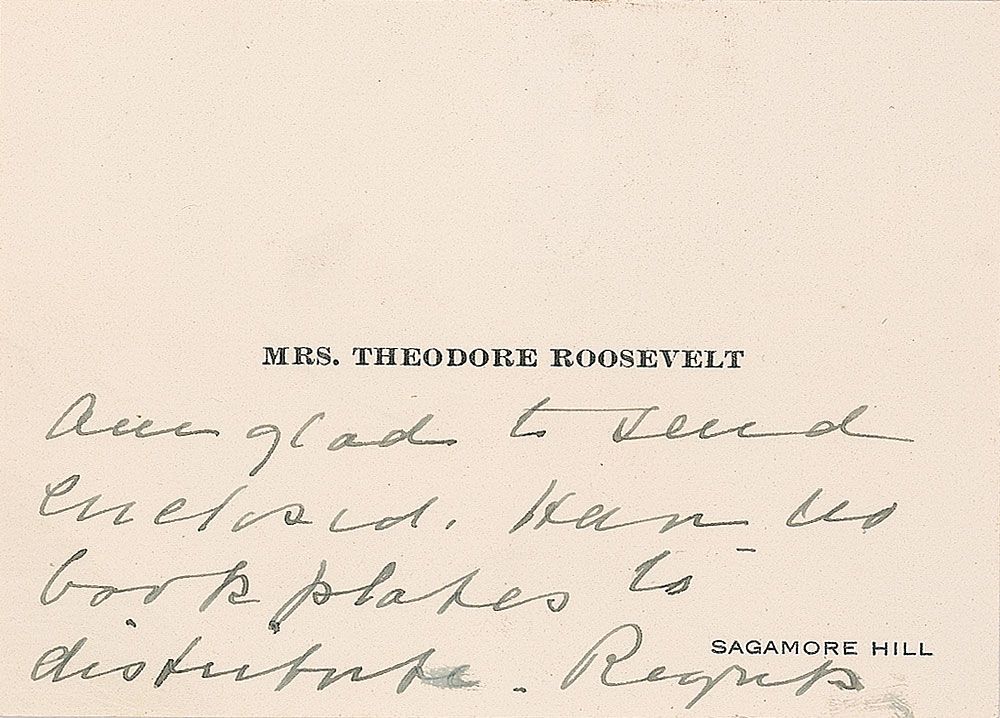 MRS. THEODORE ROOSEVELT
Am glad to send
enclosed. Have no
book plates to
distribute. Regrets
SAGAMORE HILL